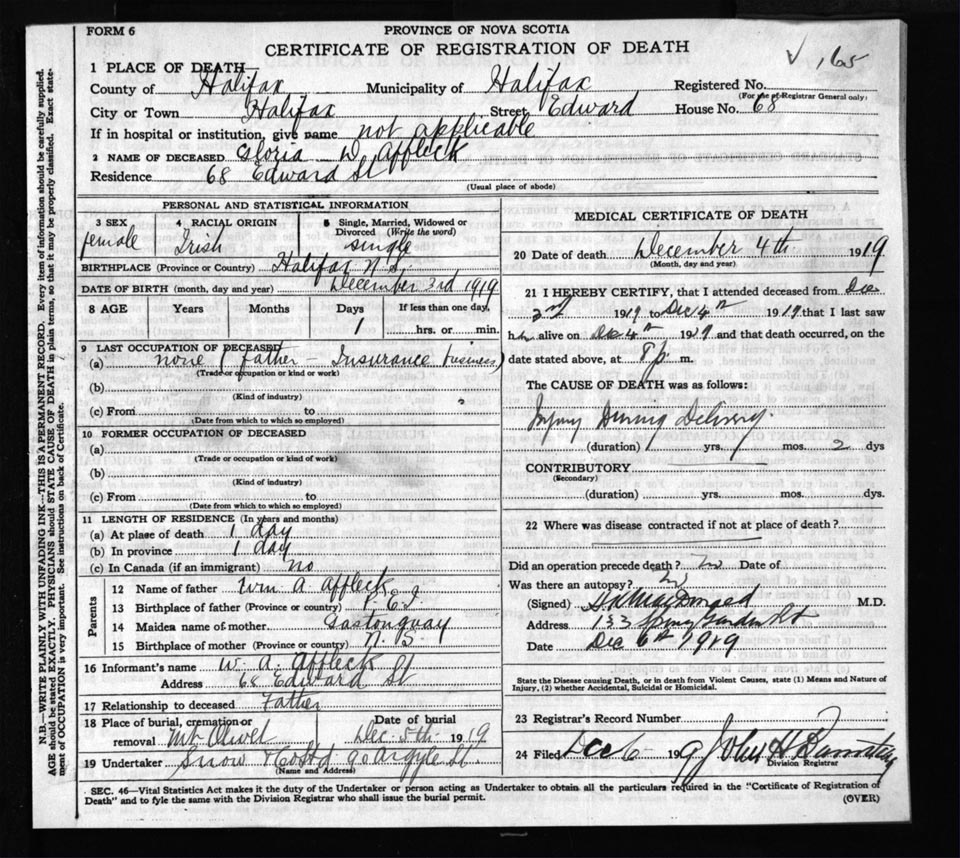 FORM 6
PROVINCE OF NOVA SCOTIA
CERTIFICATE OF REGISTRATION OF DEATH
√ 165
1 PLACE OF DEATH—
County of Halifax Municipality of Halifax Registered No.
(For use of Registrar General only)
City or Town Halifax Street Edward House No. 68
If in hospital or institution, give name not applicable
2 NAME OF DECEASED Gloria W. Affleck
Residence 68 Edward St
(Usual place of abode)
PERSONAL AND STATISTICAL INFORMATION
3 SEX 4 RACIAL ORIGIN 5 Single, Married, Widowed or
Divorced (Write the word)
female Irish single
BIRTHPLACE (Province or Country) Halifax N.S.
DATE OF BIRTH (month, day and year) December 3rd 1919
8 AGE Years Months Days If less than one day,
1 hrs. or min.
9 LAST OCCUPATION OF DECEASED
(a) none (father - Insurance business)
(Trade or occupation or kind of work)
(b)
(Kind of industry)
(c) From to
(Date from which to which so employed)
10 FORMER OCCUPATION OF DECEASED
(a)
(Trade or occupation or kind of work)
(b)
(Kind of industry)
(c) From to
(Date from which to which so employed)
11 LENGTH OF RESIDENCE (In years and months)
(a) At place of death 1 day
(b) In province 1 day
(c) In Canada (if an immigrant) no
Parents
12 Name of father Wm. A. Affleck
13 Birthplace of father (Province or country) P.E.I
14 Maiden name of mother Gastonguay
15 Birthplace of mother (Province or country) N.S.
16 Informant's name W. A. Affleck
Address 68 Edward St
17 Relationship to deceased Father
18 Place of burial, cremation or Date of burial
removal Mt Olivet Dec. 5th 1919
19 Undertaker Snow & Co Ltd 90 Argyle St.
(Name and Address)
MEDICAL CERTIFICATE OF DEATH
20 Date of death December 4th 1919
(Month, day and year)
21 I HEREBY CERTIFY, that I attended deceased from Dec
1919 to Dec 4th 1919 that I last saw
h alive on Dec 4th 1919 and that death occurred, on the
date stated above, at 9 p. m.
The CAUSE OF DEATH was as follows:
Injury During Delivery.
(duration) yrs. mos. 2 dys
CONTRIBUTORY
(Secondary)
(duration) yrs. mos. dys.
22 Where was disease contracted if not at place of death?
Did an operation precede death? no Date of
Was there an autopsy? no
(Signed) MacDonald M.D.
Address Spring Garden Rd
Date Dec 6th 1919
State the Disease causing Death, or in death from Violent Causes, state (1) Means and Nature of
Injury, (2) whether Accidental, Suicidal or Homicidal.
23 Registrar's Record Number
24 Filed Dec 6 19 John H
Division Registrar
SEC. 46—Vital Statistics Act makes it the duty of the Undertaker or person acting as Undertaker to obtain all the particulars required in the "Certificate of Registration of
Death" and to fyle the same with the Division Registrar who shall issue the burial permit.
(OVER)
N.B.—WRITE PLAINLY WITH UNFADING INK—THIS IS A PERMANENT RECORD. Every item of information should be carefully supplied.
AGE should be stated EXACTLY. PHYSICIANS should STATE CAUSE OF DEATH in plain terms, so that it may be properly classified. Exact state-
ment of OCCUPATION is very important. See instructions on back of Certificate.